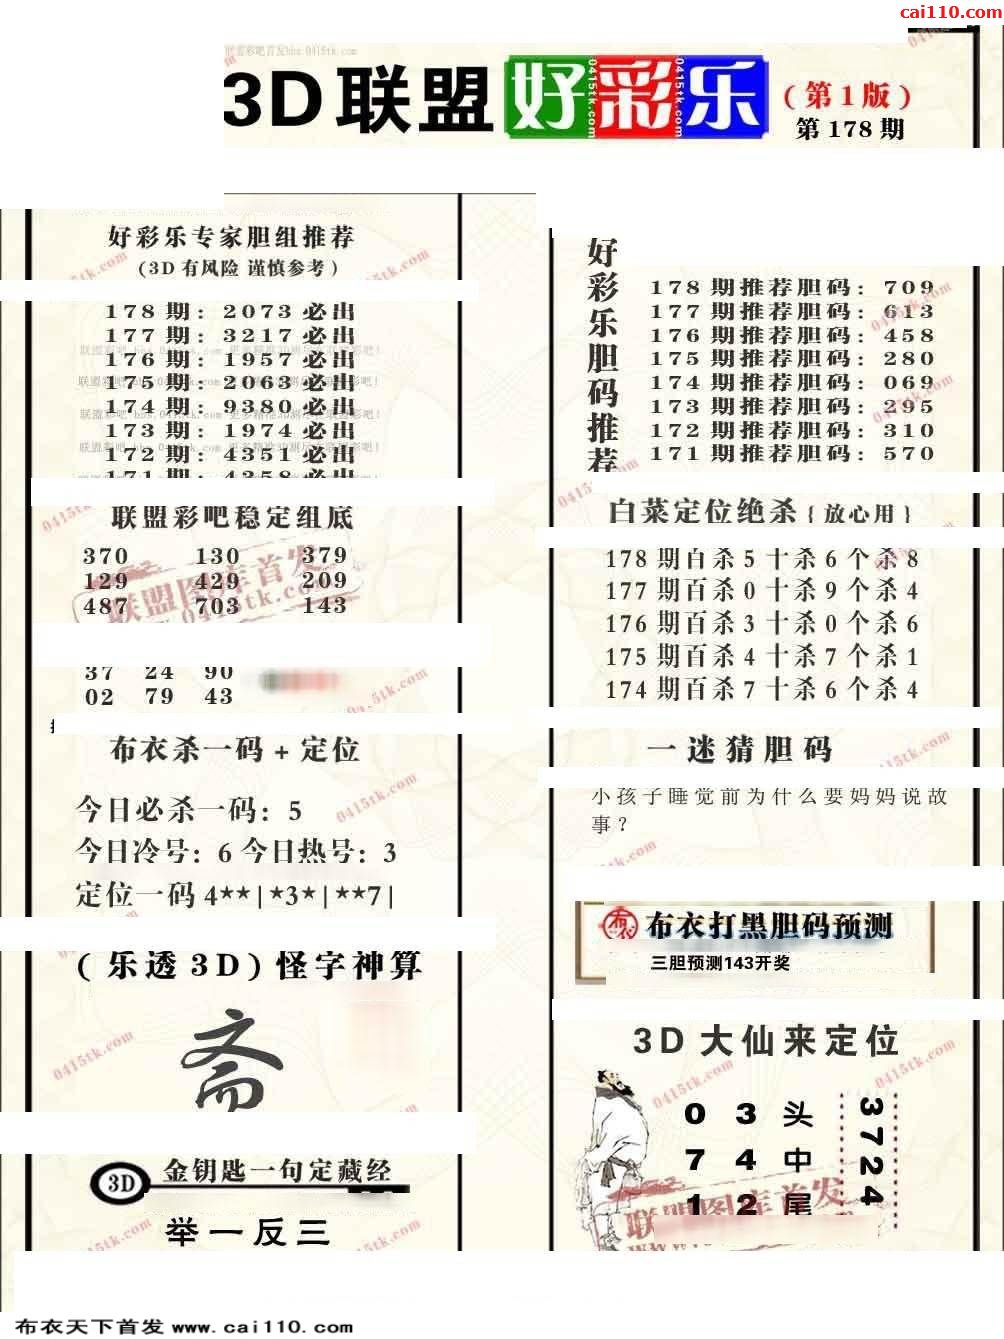 cai110.com
3D联盟 好彩乐 (第1版)
第178期
好彩乐专家胆组推荐
(3D有风险 谨慎参考)
178期: 2073必出
177期: 3217必出
176期: 1957必出
175期: 2063必出
174期: 9380必出
173期: 1974必出
172期: 4351必出
171期: 4358必出
联盟彩吧稳定组底
370 130 379
129 429 209
487 703 143
37 24 90
02 79 43
布衣杀一码+定位
今日必杀一码: 5
今日冷号: 6 今日热号: 3
定位一码 4**|*3*|**7|
(乐透3D)怪字神算
斋
3D 金钥匙一句定藏经
举一反三
好彩乐胆码推荐
178期推荐胆码: 709
177期推荐胆码: 613
176期推荐胆码: 458
175期推荐胆码: 280
174期推荐胆码: 069
173期推荐胆码: 295
172期推荐胆码: 310
171期推荐胆码: 570
白菜定位绝杀{放心用}
178期百杀5十杀6个杀8
177期百杀0十杀9个杀4
176期百杀3十杀0个杀6
175期百杀4十杀7个杀1
174期百杀7十杀6个杀4
一迷猜胆码
小孩子睡觉前为什么要妈妈说故
事?
布衣 布衣打黑胆码预测
三胆预测143开奖
3D大仙来定位
0 3 头
7 4 中
1 2 尾
3724
联盟图库首发
0415tk.com
布衣天下首发 www.cai110.com